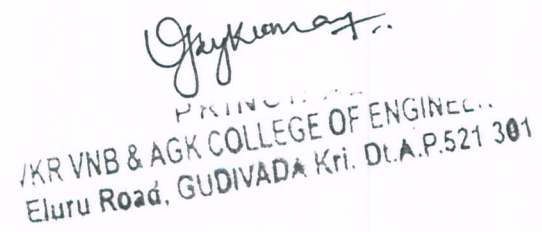 PRINCI
VKR VNB & AGK COLLEGE OF ENGINEE..
Eluru Road, GUDIVADA Kri. Dt.A.P.521 301